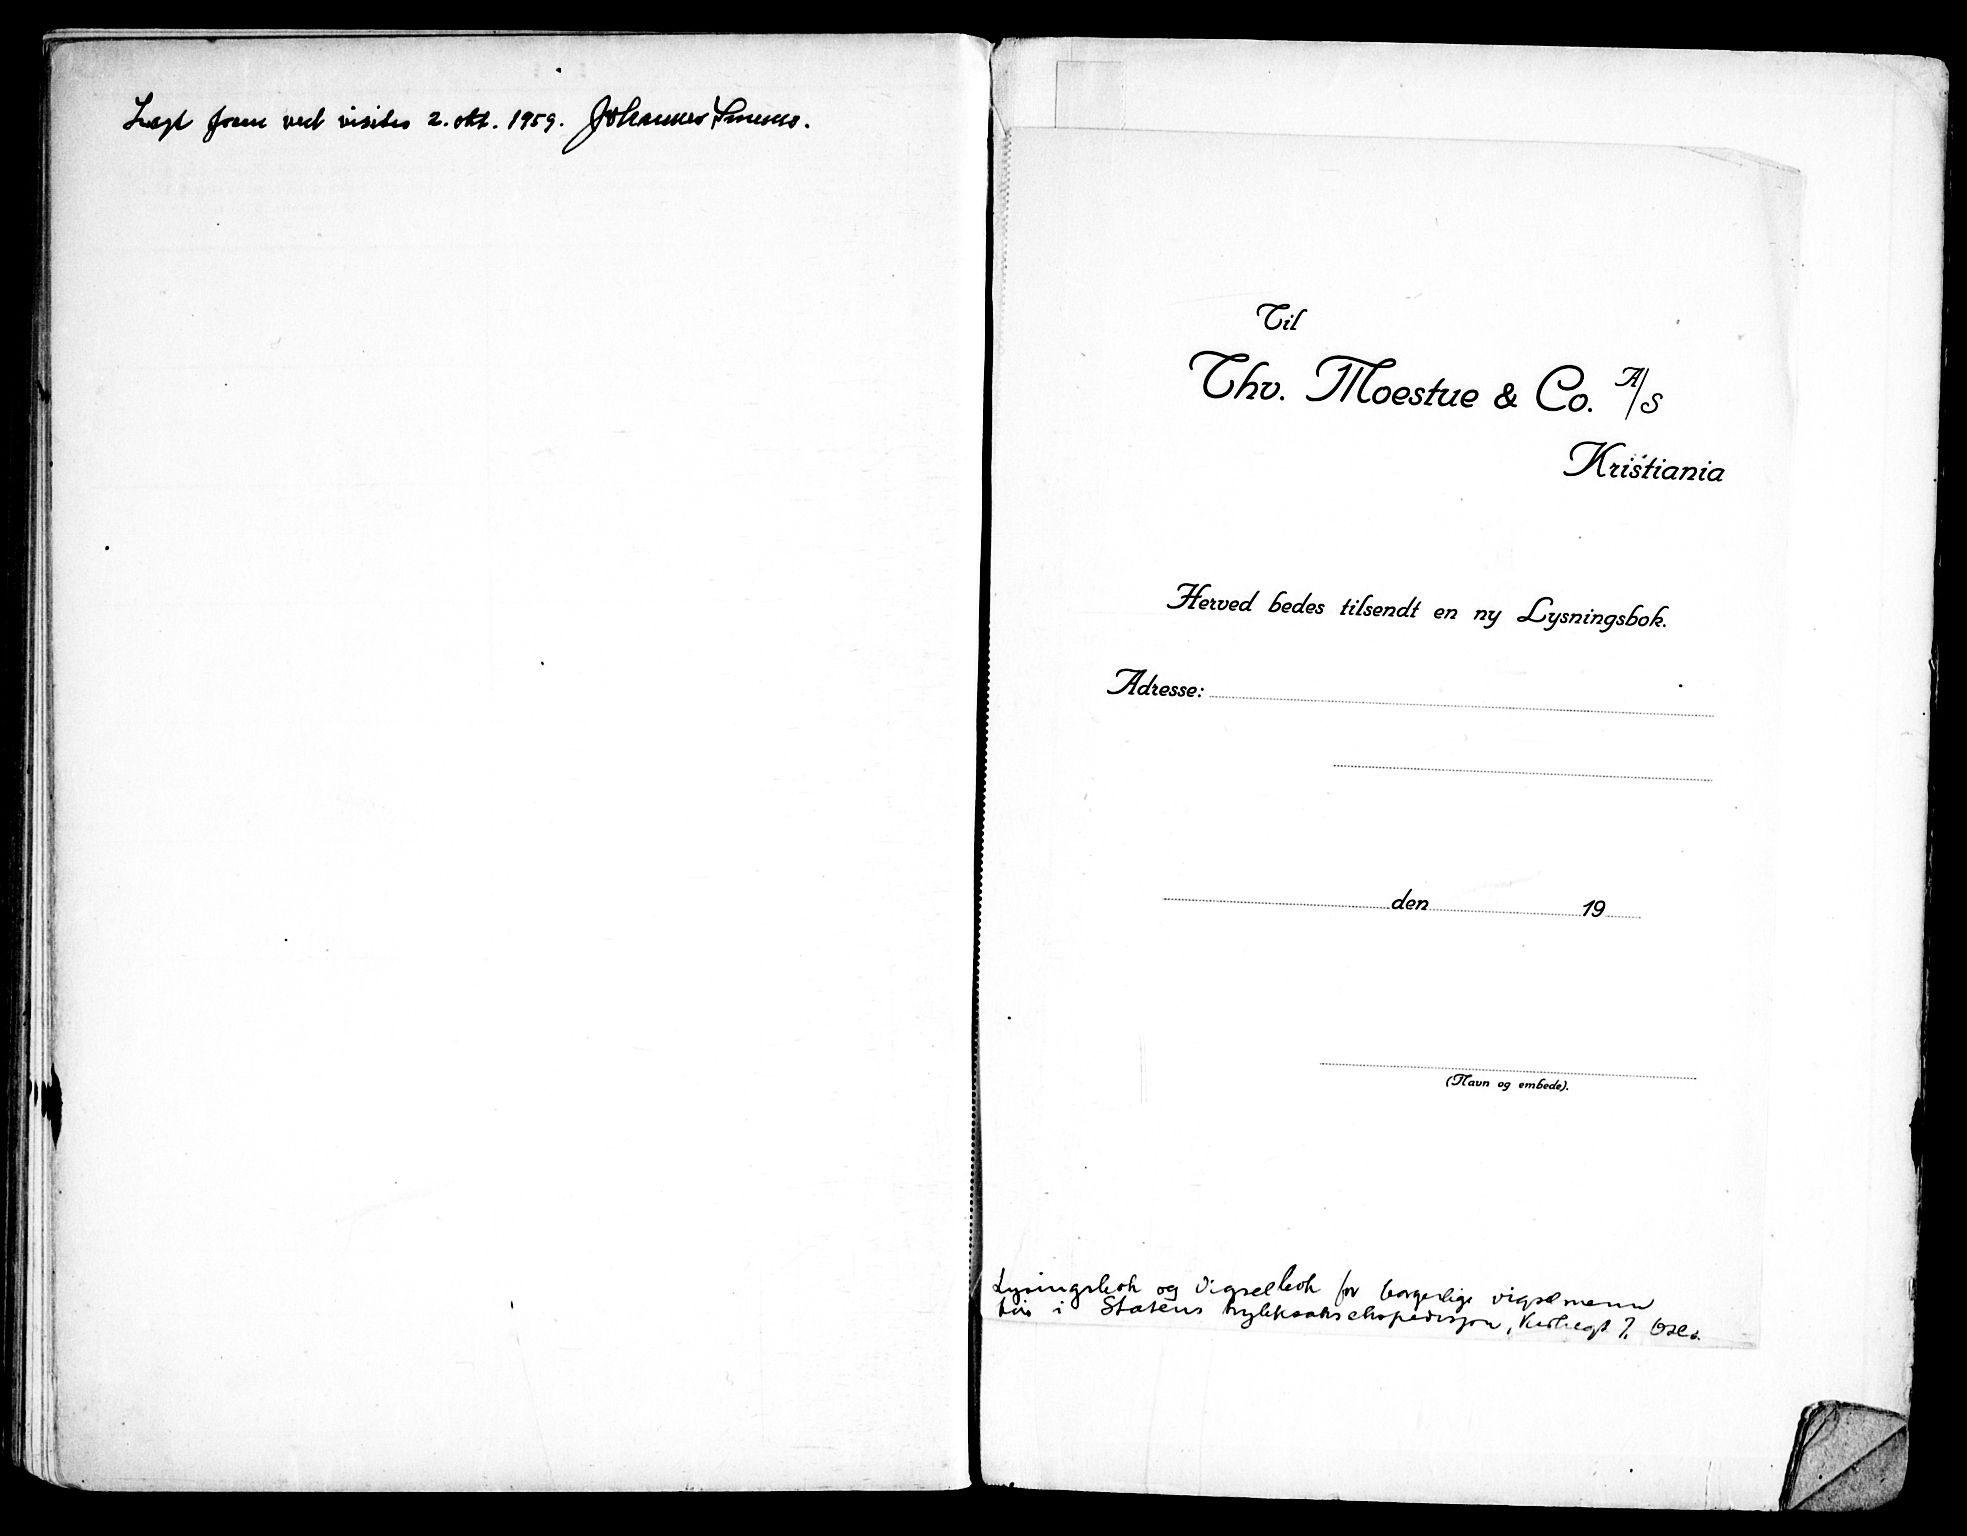 Lagt frem ved visitas 2. okt. 1959. Johannes Smemo.
Til
Thv. Moestue & Co. A/S
Kristiania
Herved bedes tilsendt en ny Lysningsbok.
Adresse:
den 19
(Navn og embede).
Lysingsbok og Vigselbok for borgerlige vigselmenn
fås i Statens trykksakekspedisjon, Oslo.